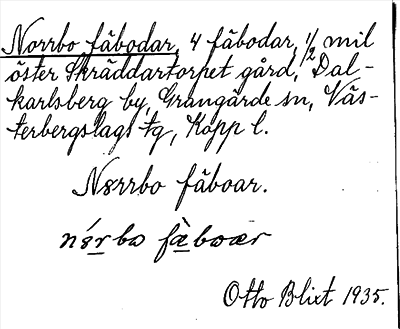 Norrbo fäbodar, 4 fäbodar, 1/2 mil
öster Skräddartorpet gård, Dal-
karlsberg by, Grangärde sn, Väs-
terbergslags tg, Kopp l.
Nørrbo fäboar.
Otto Blixt 1935.